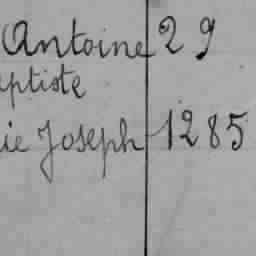 Antoine 29
aptiste
ie Joseph 1285